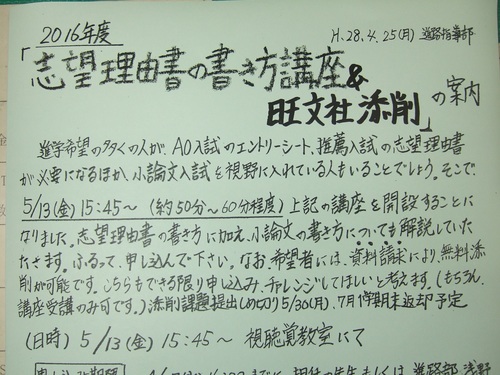 2016年度
H.28.4.25(月) 進路指導部
「志望理由書の書き方講座&
旺文社添削」の案内
進学希望の多くの人が、AO入試のエントリーシート、推薦入試の志望理由書
が必要になるほか、小論文入試を視野に入れている人もいることでしょう。そこで、
5/13(金) 15:45～ (約50分～60分程度) 上記の講座を開設することに
なりました。志望理由書の書き方に加え、小論文の書き方についても解説していた
だきます。ふるって、申し込んで下さい。なお、希望者には、資料請求により、無料添
削が可能です。こちらもできる限り申し込み、チャレンジしてほしいと考えます。(もちろん、
講座受講のみ可です。) 添削課題提出(〆切り5/30(月)、7月1学期末返却予定
(日時) 5/13(金) 15:45～ 視聴覚教室にて